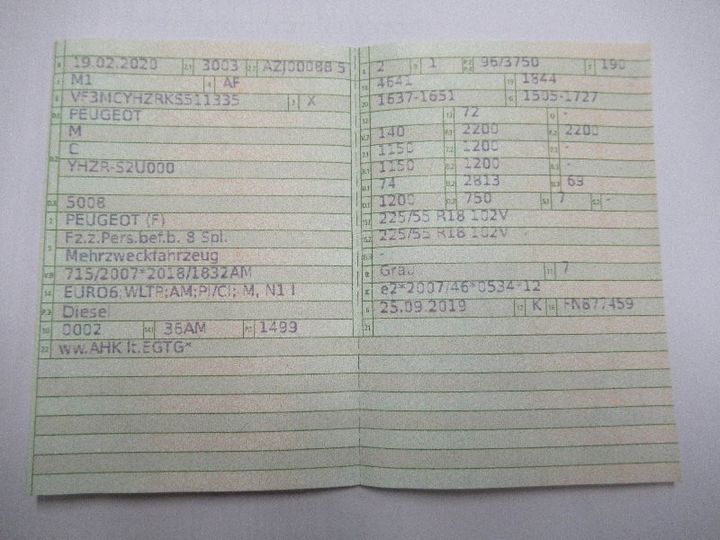 19.02.2020 3003 AZJ00088 5
M1 AF
VF3MCYHZRKS511335 X
PEUGEOT
M
C
YHZR-S2U000
5008
PEUGEOT (F)
Fz.z.Pers.bef.b. 8 Spl.
Mehrzweckfahrzeug
715/2007*2018/1832AM
EURO6;WLTP;AM;PI/CI; M, N1 I
Diesel
0002 36AM 1499
ww.AHK lt.EGTG*
2 1 96/3750 190
4641 1844
1637-1651 1505-1727
- 72 -
140 2200 2200
1150 1200 -
1150 1200 -
74 2813 69
1200 750 7 -
225/55 R18 102V
225/55 R18 102V
-
Grau 7
e2*2007/46*0534*12
25.09.2019 K FN877459